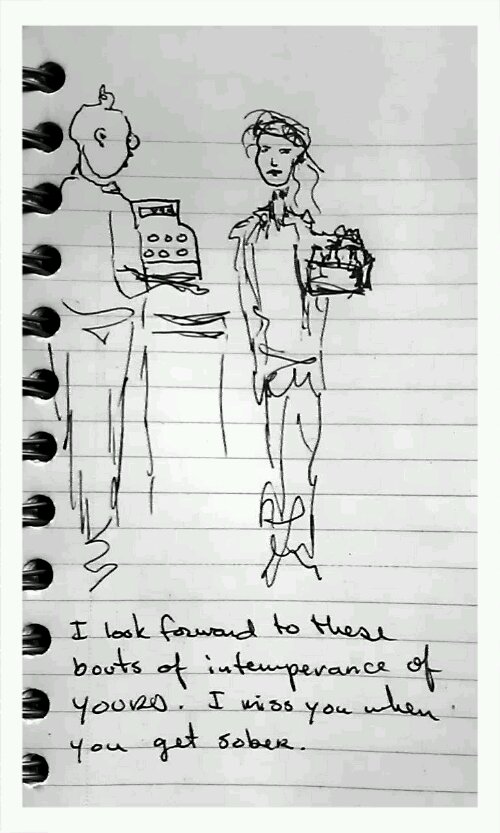 I look forward to these
bouts of intemperance of
YOURS. I miss you when
you get sober.